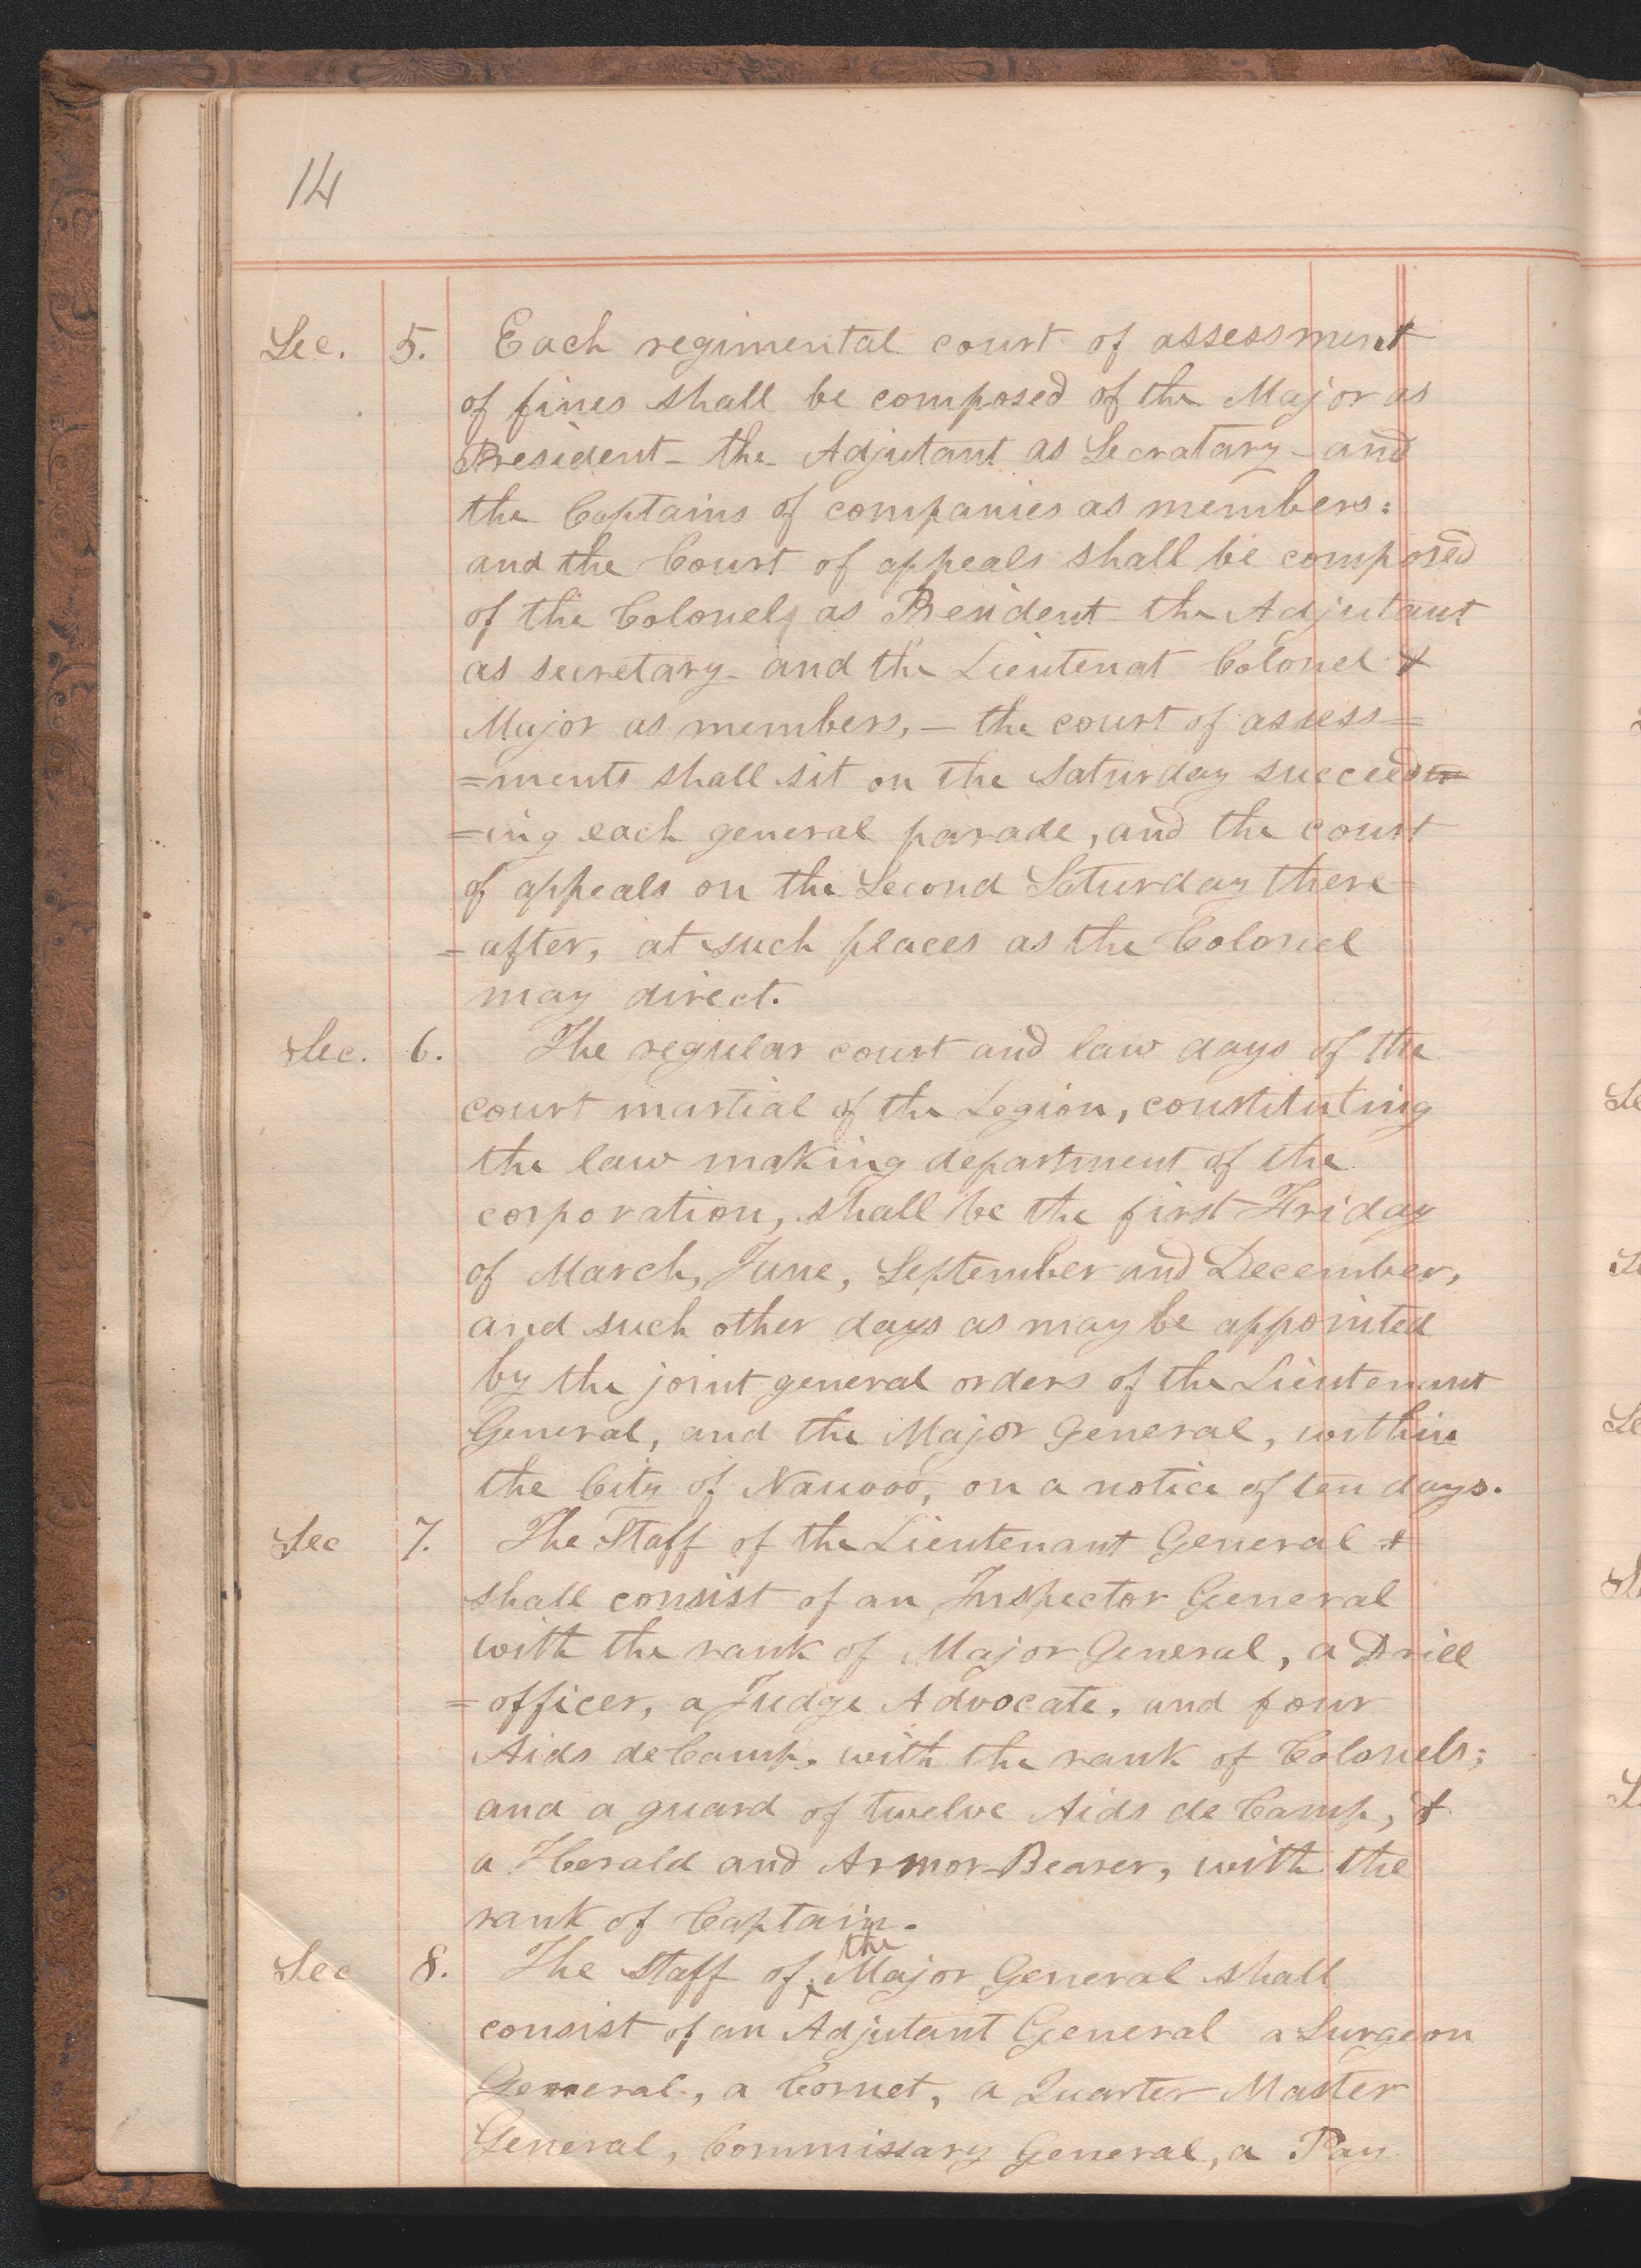 14
Sec. 5. Each regimental court of assessment
of fines shall be composed of the Major as
President – the Adjutant as Secratary – and
the Captains of companies as members:
and the Court of appeals shall be composed
of the Colonel, as President the Adjutant
as secretary – and the Lieutenat Colonel &
Major as members, – the court of assess=
=ments shall sit on the Saturday succeed
=ing each general parade, and the court
of appeals on the Second Saturday there=
=after, at such places as the Colonel
may direct.
Sec. 6. The regular court and law days of the
court martial of the Legion, constituting
the law making department of the
corporation, shall be the first Friday
of March, June, September and December,
and such other days as may be appointed
by the joint general orders of the Lieutenant
General, and the Major General, within
the City of Nauvoo, on a notice of ten days.
Sec 7. The Staff of the Lieutenant General &
shall consist of an Inspector General
with the rank of Major General, a Drill
=officer, a Judge Advocate, and four
Aids de Camp. with the rank of Colonels;
and a guard of twelve Aids de Camp, &
a Herald and Armor-Bearer, with the
rank of Captain.
Sec 8. The Staff of the Major General shall
consist of an Adjutant General a Surgeon
General, a Cornet, a Quarter Master
General, Commissary General, a Pay